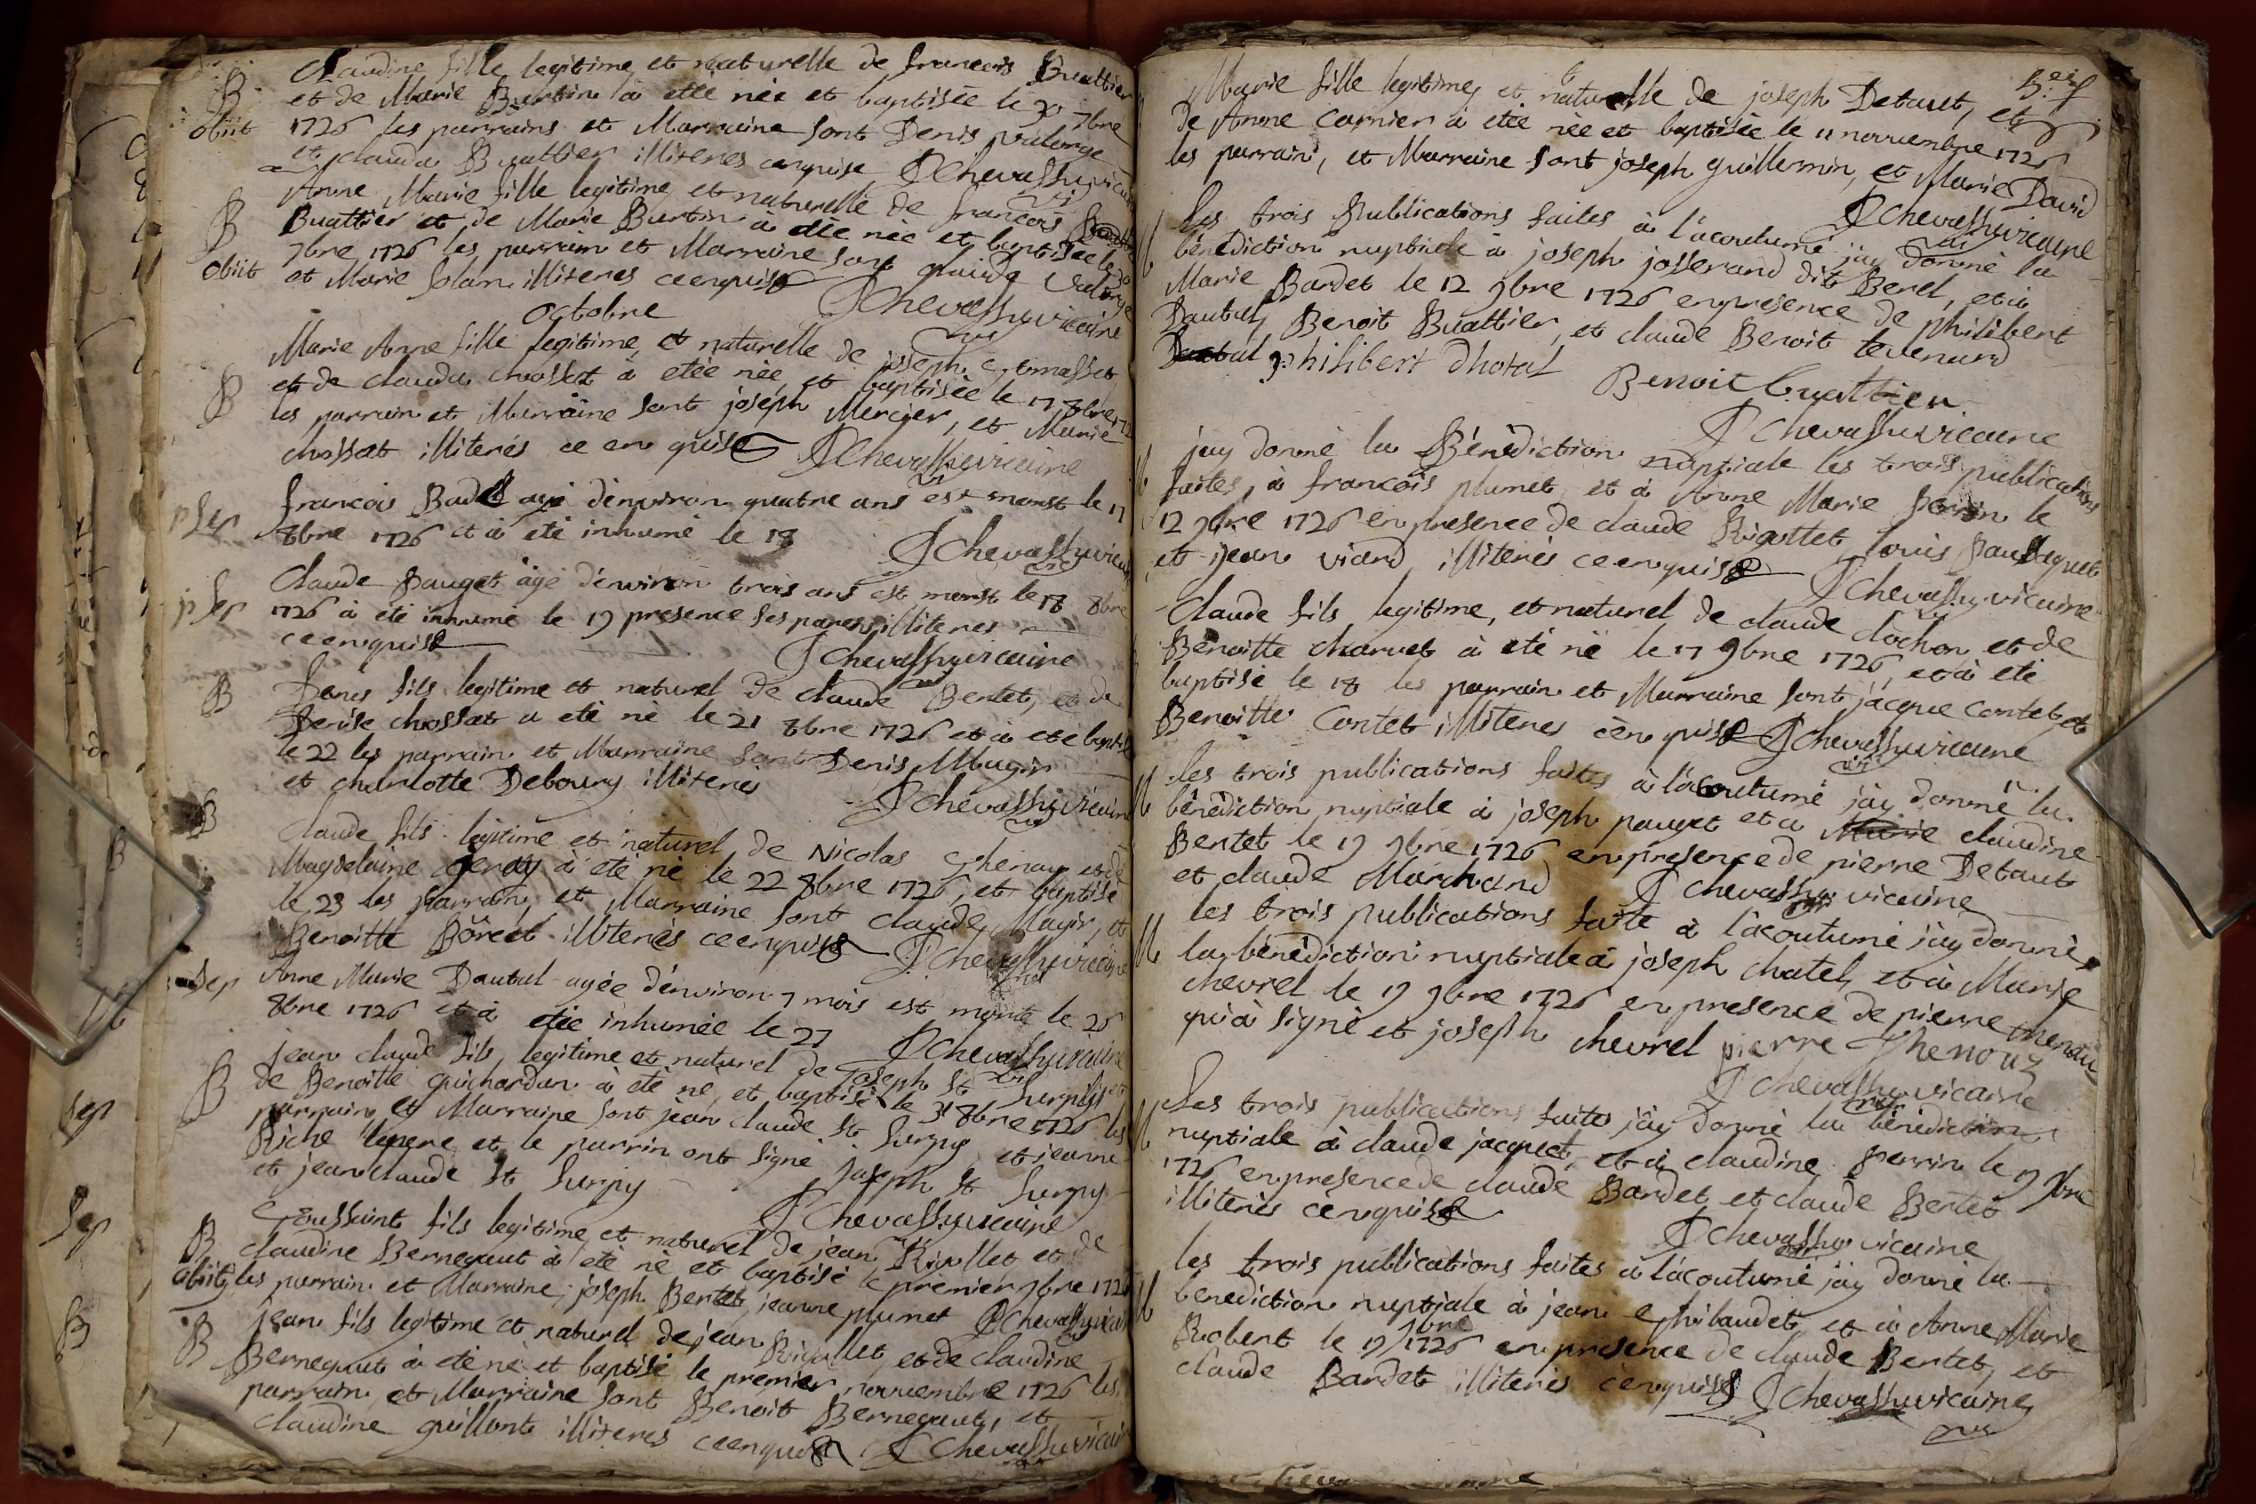 B Claudine fille legitime et naturelle de francois Buattier
et de Marie Burtin à eteè neè et baptisèe le 30 7bre
obiit 1726 les parrains et Marraine sont Denis valorge
et clauda Buattier illiteres cenquise JChevassu vicaire
Anne Marie fille legitime et naturelle de francois
B Buattier et de Marie Burtin à eteè neè et baptisèe le 30
7bre 1726 les parrain et Marraine sont glaude valorge
obiit et Marie Solan illiteres ceenquise JChevassu vicaire
Octobre
Marie Anne fille legitime et naturelle de joseph
B et de clauda chossat à eteè neè et baptisèe le 17 8bre 172
les parrain et Marraine sont joseph Mercier, et Marie
chossat illiterés ce enquise JChevassu vicaire
francois Badel agé dénviron quatre ans est mort le 17
p sep 8bre 1726 et à eté inhumé le 18 JChevassu vicaire
Claude pauget âgé dénviron trois ans est mort le 18 8bre
p sep 1726 à eté inhumé le 19 presence ses parens illiteres
ceenquise JChevassu vicaire
B Denis fils legitime et naturel de claude Bertet, et de
Denise chossat a eté né le 21 8bre 1726 et à eté baptisé
le 22 les parrain et Marraine sont Denis Mugin
et charlotte Deboury illiterés JChevassu vicaire
B Claude fils legitime et naturel de Nicolas Thenoux et de
Magdelaine geray à eté né le 22 8bre 1726, et baptisé
le 23 les parrain, et Marraine sont claude Mugin, et
Benoitte Borcet illiteres ceenquise JChevassu vicaire
sep Anne Marie Dautal agée dénviron 7 mois est morte le 26
8bre 1726 et à etée inhumée le 27 JChevassu vicaire
jean claude fils legitime et naturel de joseph St Surpy et
B de Benoitte guichardan à eté né, et baptisé le 31 8bre 1726 les
parrain, et Marraine sont jean claude St Surpy et jeanne
Riche lepere et le parrin ont signé joseph St Surpy
et jean claude St Surpy JChevassu vicaire
Toussaint fils legitime et naturel de jean Rigollet et de
B claudine Bernegaut à eté né et baptisé le premier 9bre 1726
obiit les parrain et Marraine, joseph Bertet, jeanne plumet JChevassu vicaire
jean fils legitime et naturel de jean Rigollet, et de claudine
B Bernegaut à eté né et baptisé le premier novvembre 1726 les
parrain, et Marraine sont Benoit Bernegaut, et
claudine guillont illiteres ceenquise JChevassu vicaire
sep
sep
B
Marie fille legitime, et naturelle de joseph Detaut, et
de Anne Carnier à eteè neè et baptisèe le 11 novvembre 1726
les parrain, et Marraine sont joseph guillermin, et Marie David
JChevassu vicaire
M les trois Publications faites à l'acoutumé jay donné la
bénédiction nuptiale à joseph josserand dit Berel, et à
Marie Bardet le 12 9bre 1726 enpresence de philibert
Dautal, Benoit Buattier, et claude Benoit tevenard
philibert Dhotal Benoit buattier
JChevassu vicaire
M jay donné la Bénédiction nuptiale les trois publications
faites, à francois plumet et à Anne Marie perrin le
12 9bre 1726 en presence de claude Rigottet, louis
et jean viard illiteres ceenquise JChevassu vicaire
Claude fils legitime, et naturel de claude Clochon et de
Benoitte charvet à eté né le 17 9bre 1726, et à eté
baptisé le 18 les parrain et Marraine sont jacque Contet, et
Benoitte Contet illiteres cenquise JChevassu vicaire
M les trois publications faites à l'acoutumé jay donné la
bénédiction nuptiale à joseph pauget et a claudine
Bertet le 19 9bre 1726 enpresence de pierre Detaut
et claude Marchand JChevassu vicaire
les trois publications faite à l'acoutumé jay donné
M la bénédiction nuptiale à joseph chatel, et à Marie
chevrel le 19 9bre 1726 en presence de pierre thenou
qui à signé et joseph chevrel pierre Thenouz
JChevassu vicaire
M Les trois publications faites jay donné la bénédiction
nuptiale à claude jacquet, et à claudine perrin le 19 9bre
1726 enpresence de claude Bardet, et claude Bertet
illiterés cenquise JChevassu vicaire
les trois publications faites à l'acoutumé jay donné la
M benediction nuptiale à jean et à Anne Marie
Robert le 19 9bre 1726 en presence de claude Bertet, et
claude Bardet illiterés cenquise JChevassu vicaire